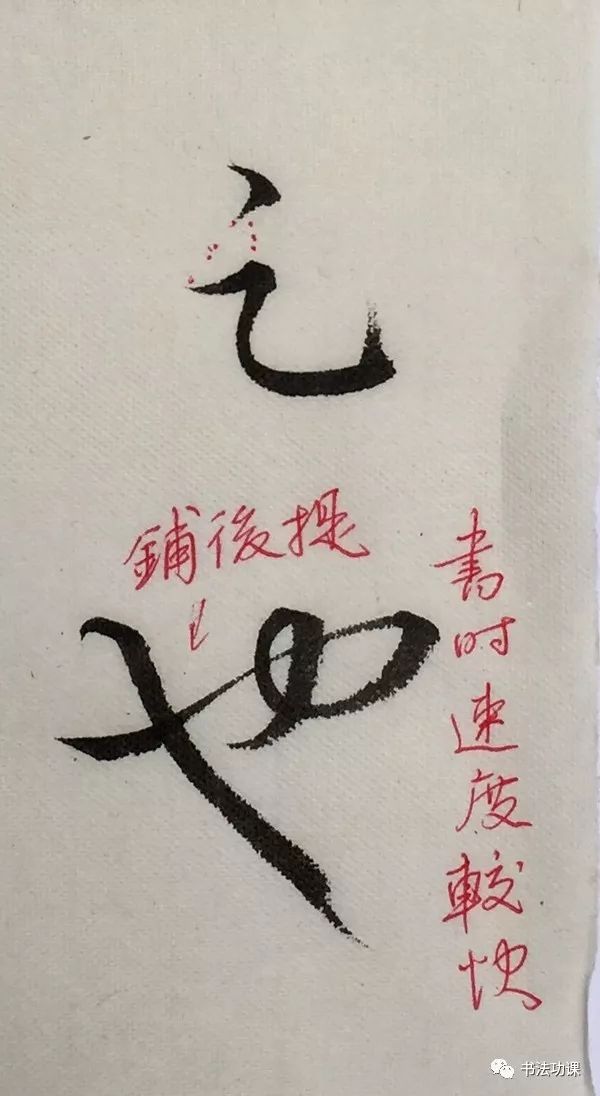 之
鋪後提
書时速度較快
书法功课